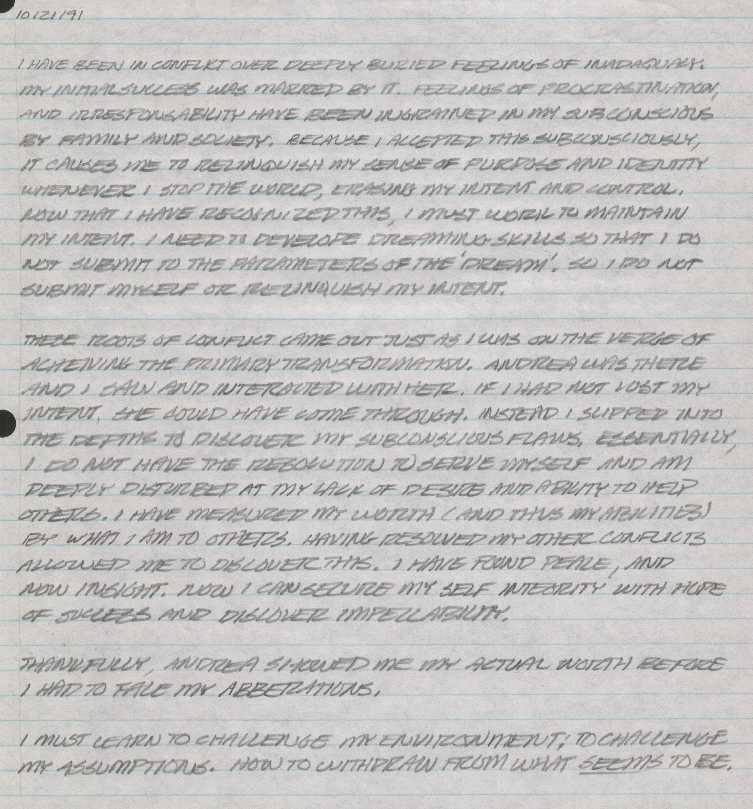 10/21/91
I HAVE BEEN IN CONFLICT OVER DEEPLY BURIED FEELINGS OF INADAQUACY.
MY INITIAL SUCCESS WAS MARRED BY IT. FEELINGS OF PROCRASTINATION,
AND IRRESPONSABILITY HAVE BEEN INGRAINED IN MY SUBCONSCIOUS
BY FAMILY AND SOCIETY. BECAUSE I ACCEPTED THIS SUBCONSCIOUSLY,
IT CAUSES ME TO RELINQUISH MY SENSE OF PURPOSE AND IDENTITY
WHENEVER I STOP THE WORLD, ERASING MY INTENT AND CONTROL.
NOW THAT I HAVE RECOGNIZED THIS, I MUST WORK TO MAINTAIN
MY INTENT. I NEED TO DEVELOPE DREAMING SKILLS SO THAT I DO
NOT SUBMIT TO THE PARAMETERS OF THE 'DREAM'. SO I DO NOT
SUBMIT MYSELF OR RELINQUISH MY INTENT.
THESE ROOTS OF CONFLICT CAME OUT JUST AS I WAS ON THE VERGE OF
ACHEIVING THE PRIMARY TRANSFORMATION. ANDREA WAS THERE
AND I SAW AND INTERACTED WITH HER. IF I HAD NOT LOST MY
INTENT, SHE COULD HAVE COME THROUGH. INSTEAD I SLIPPED INTO
THE DEPTHS TO DISCOVER MY SUBCONSCIOUS FLAWS. ESSENTIALLY,
I DO NOT HAVE THE RESOLUTION TO SERVE MYSELF AND AM
DEEPLY DISTURBED AT MY LACK OF DESIRE AND ABILITY TO HELP
OTHERS. I HAVE MEASURED MY WORTH (AND THUS MY ABILITIES)
BY WHAT I AM TO OTHERS. HAVING RESOLVED MY OTHER CONFLICTS
ALLOWED ME TO DISCOVER THIS. I HAVE FOUND PEACE, AND
NOW INSIGHT. NOW I CAN SECURE MY SELF INTEGRITY WITH HOPE
OF SUCCESS AND DISCOVER IMPECCABILITY.
THANKFULLY, ANDREA SHOWED ME MY ACTUAL WORTH BEFORE
I HAD TO FACE MY ABBERATIONS.
I MUST LEARN TO CHALLENGE MY ENVIRONMENT; TO CHALLENGE
MY ASSUMPTIONS. HOW TO WITHDRAW FROM WHAT SEEMS TO BE.